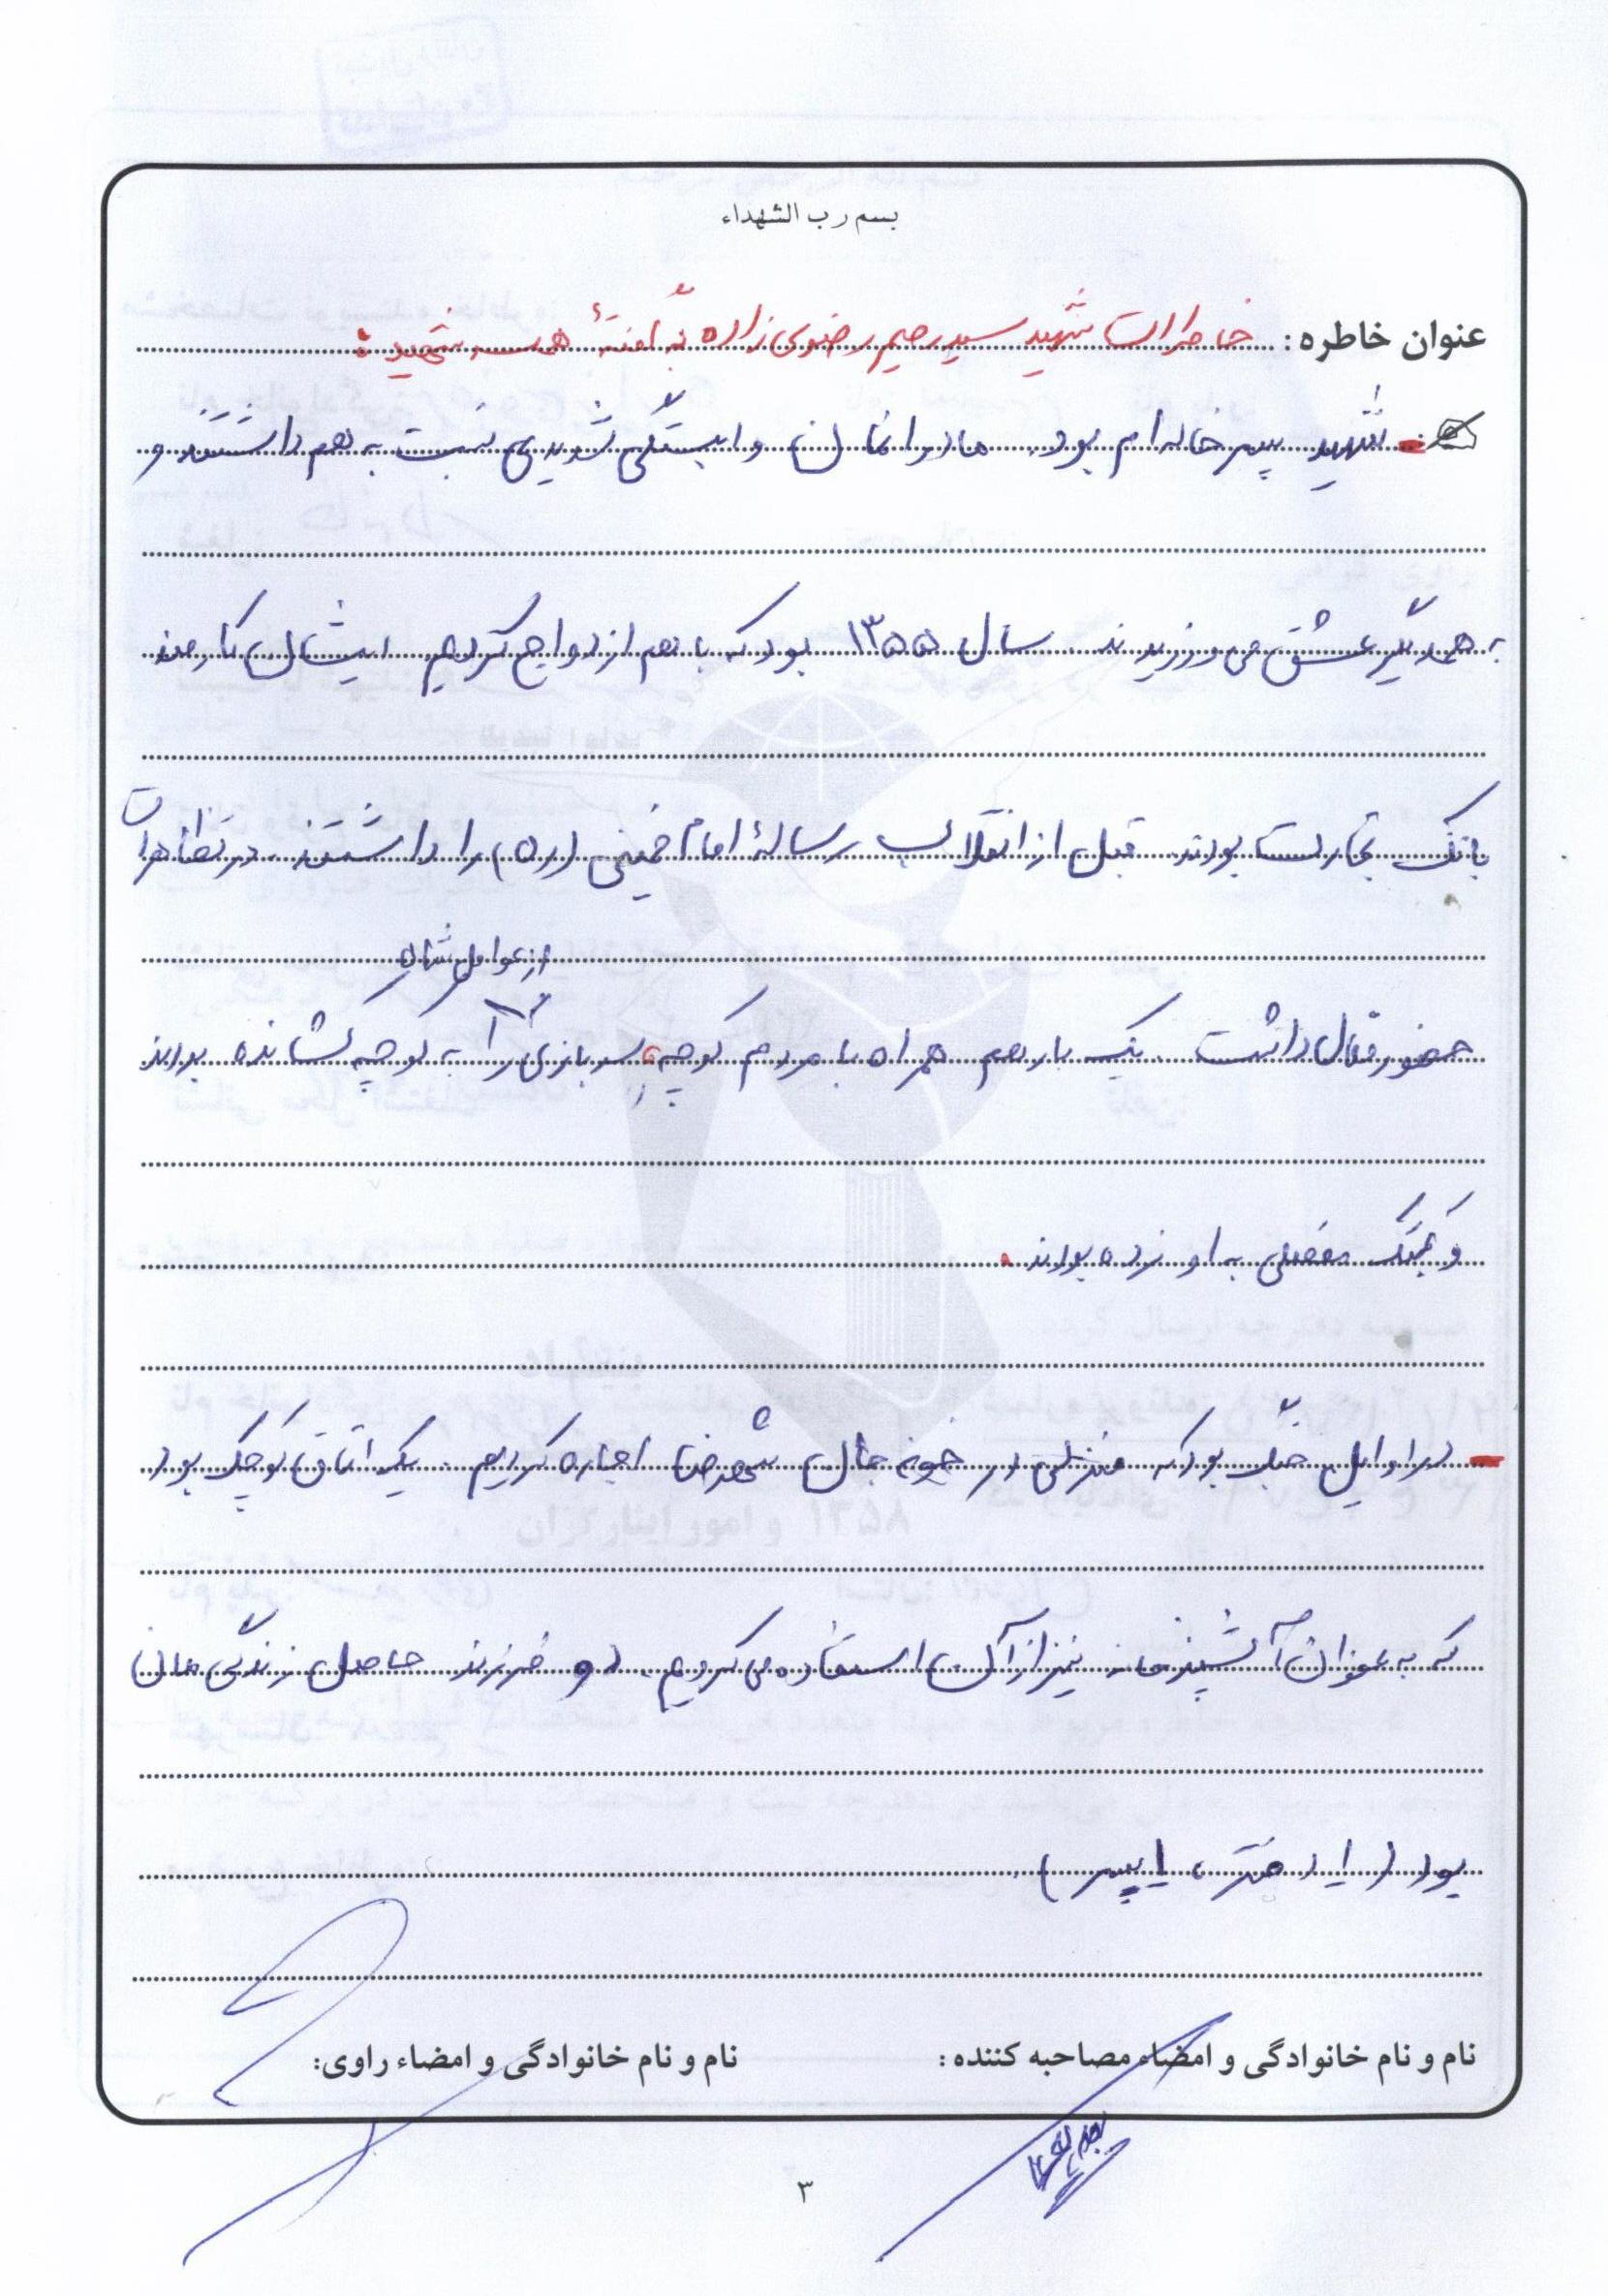 بسم رب الشهداء
عنوان خاطره: خاطرات شهید سید رحیم رضوی زاده به گفتهٔ همسر شهید:
شهید پسر خاله ام بود. مادرانمان وابستگی شدیدی نسبت به هم داشتند و
به همدیگر عشق می ورزیدند. سال ۱۳۵۵ بود که با هم ازدواج کردیم. ایشان کارمند
بانک تجارت بودند. قبل از انقلاب رسالهٔ امام خمینی (ره) را داشتند. در تظاهرات
از عوامل شاه
حضور فعال داشت. یک بار هم همراه با مردم کوچه، سربازی را به کوچه کشانده بودند
و کتک مفصلی به او زده بودند.
در اوایل جنگ بود که منزلی در خونه جان شهرضا اجاره کردیم. یک اتاق کوچک بود
که به عنوان آشپزخانه نیز از آن استفاده می کردیم. دو فرزند حاصل زندگی مان
بود (۱ دختر، ۱ پسر).
نام و نام خانوادگی و امضاء مصاحبه کننده:
نام و نام خانوادگی و امضاء راوی:
۳